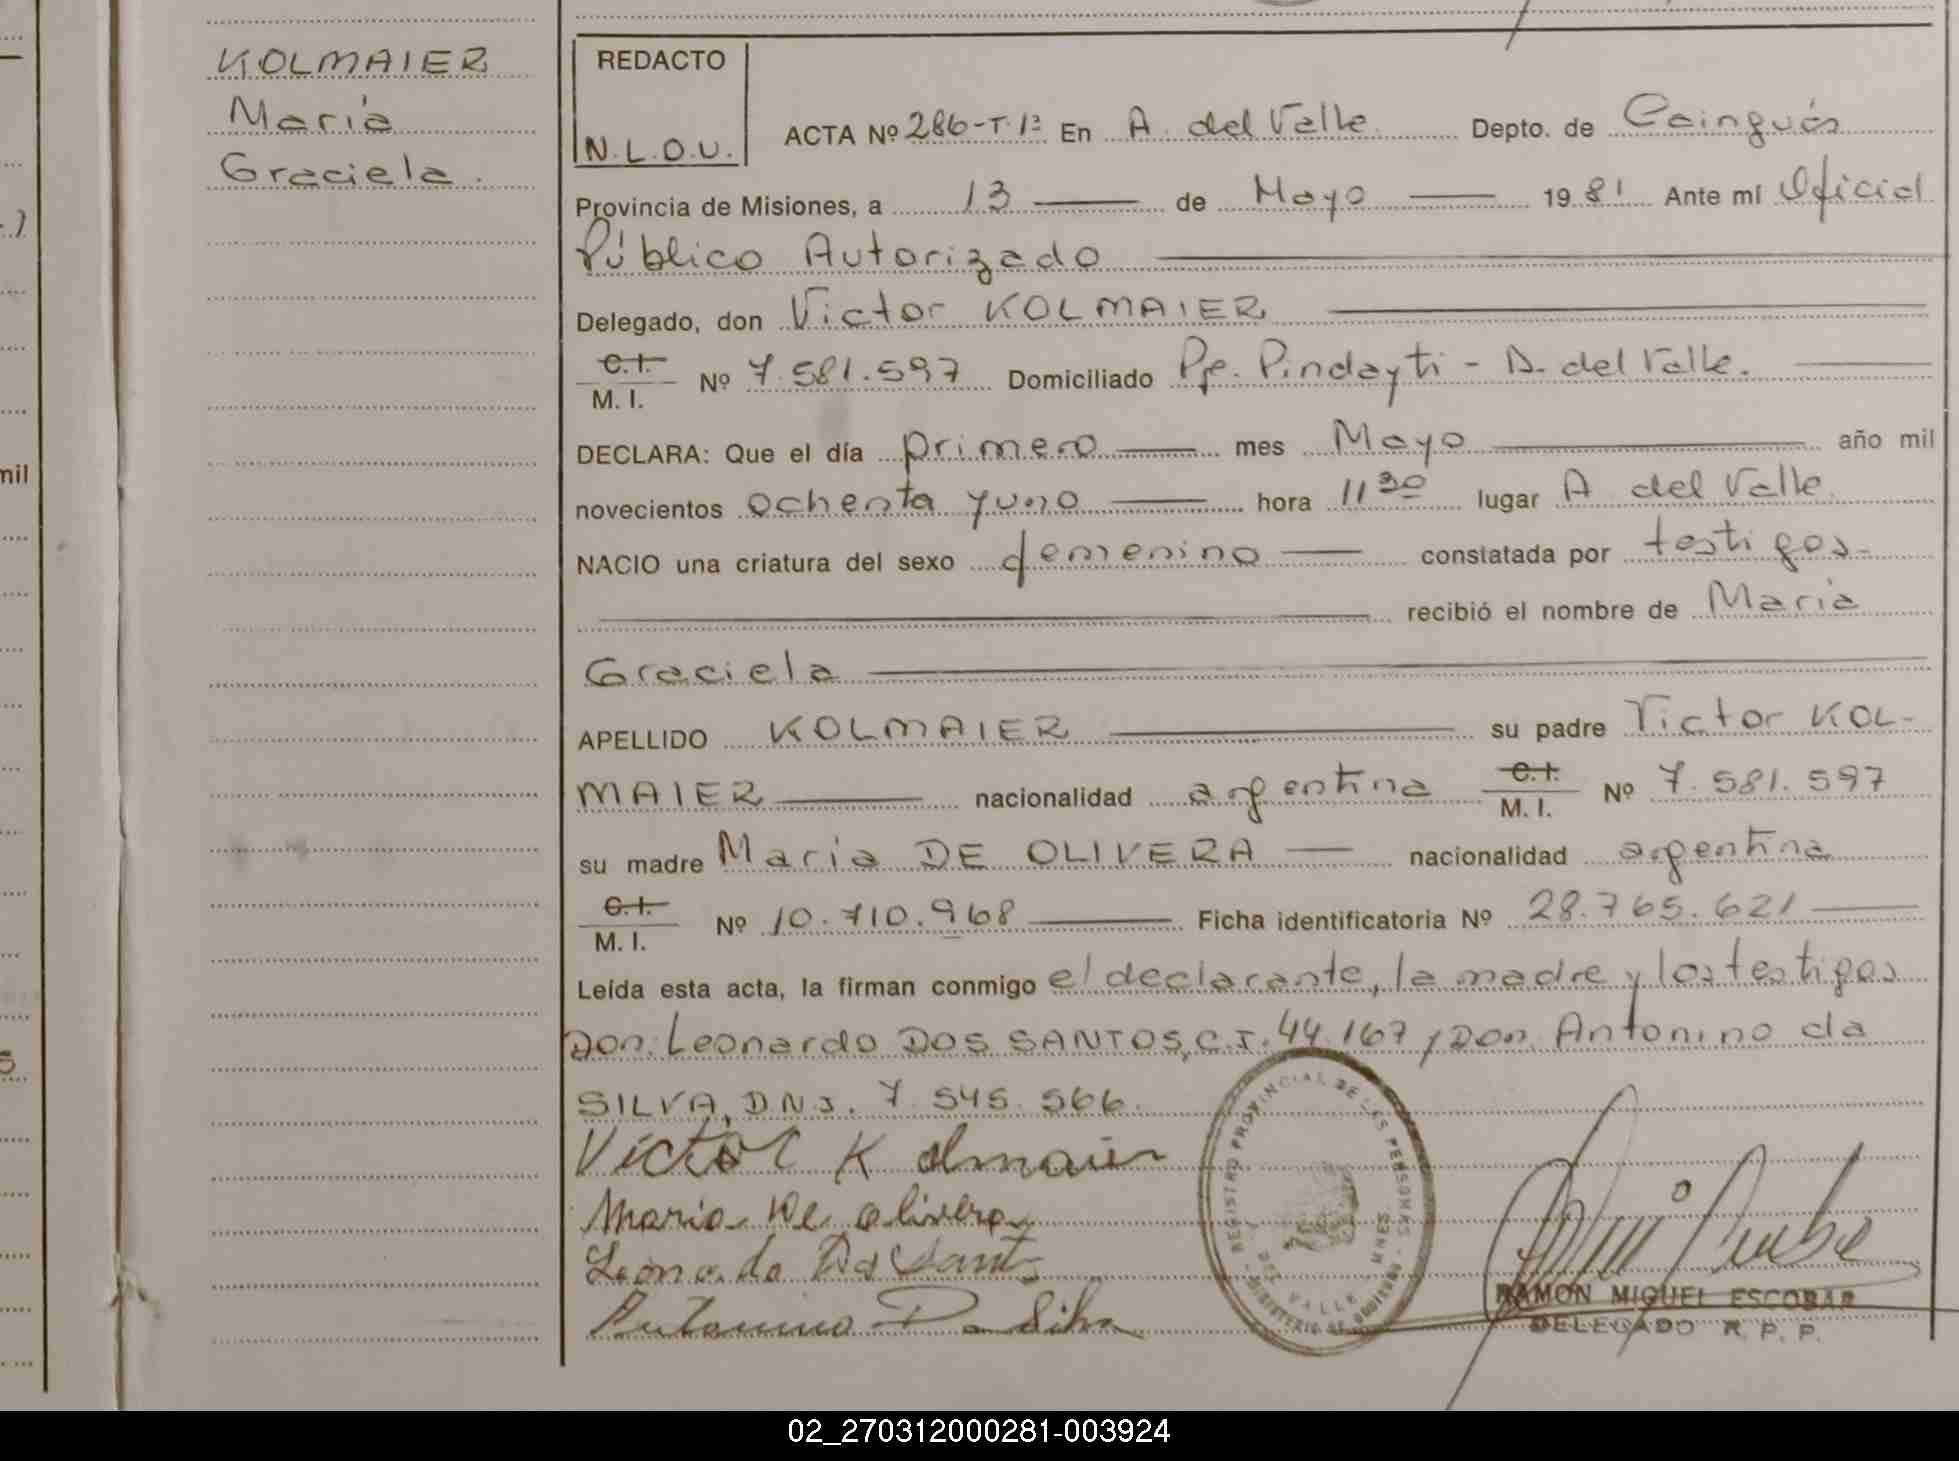 KOLMAIER
María
Graciela.
REDACTO
N.L.O.U.
ACTA Nº 286-T.1º En A. del Valle Depto. de Caingués
Provincia de Misiones, a 13 de Mayo 1981 Ante mí Oficial
Público Autorizado
Delegado, don Victor KOLMAIER
C.I.
M. I. Nº 7.581.597 Domiciliado Pje. Pindayti - A. del Valle.
DECLARA: Que el día primero mes Mayo año mil
novecientos ochenta y uno hora 11 30 lugar A del Valle
NACIO una criatura del sexo femenino constatada por testigos
recibió el nombre de María
Graciela
APELLIDO KOLMAIER su padre Victor KOL-
MAIER nacionalidad argentina C.I. M. I. Nº 7.581.597
su madre María DE OLIVERA nacionalidad argentina
C.I.
M. I. Nº 10.710.968 Ficha identificatoria Nº 28.765.621
Leída esta acta, la firman conmigo el declarante, la madre y los testigos
Don. Leonardo DOS SANTOS, C.I. 44.167 y Don Antonino da
SILVA, D.N.I. 7.545.566.
Victor Kolmaier
Maria De olivera
Leonardo Dos Santos
Antonino Da Silva
REGISTRO PROVINCIAL DE LAS PERSONAS
MINISTERIO DE GOBIERNO
DEL VALLE
MNES.
RAMON MIGUEL ESCOBAR
DELEGADO R. P. P.
mil
02_270312000281-003924